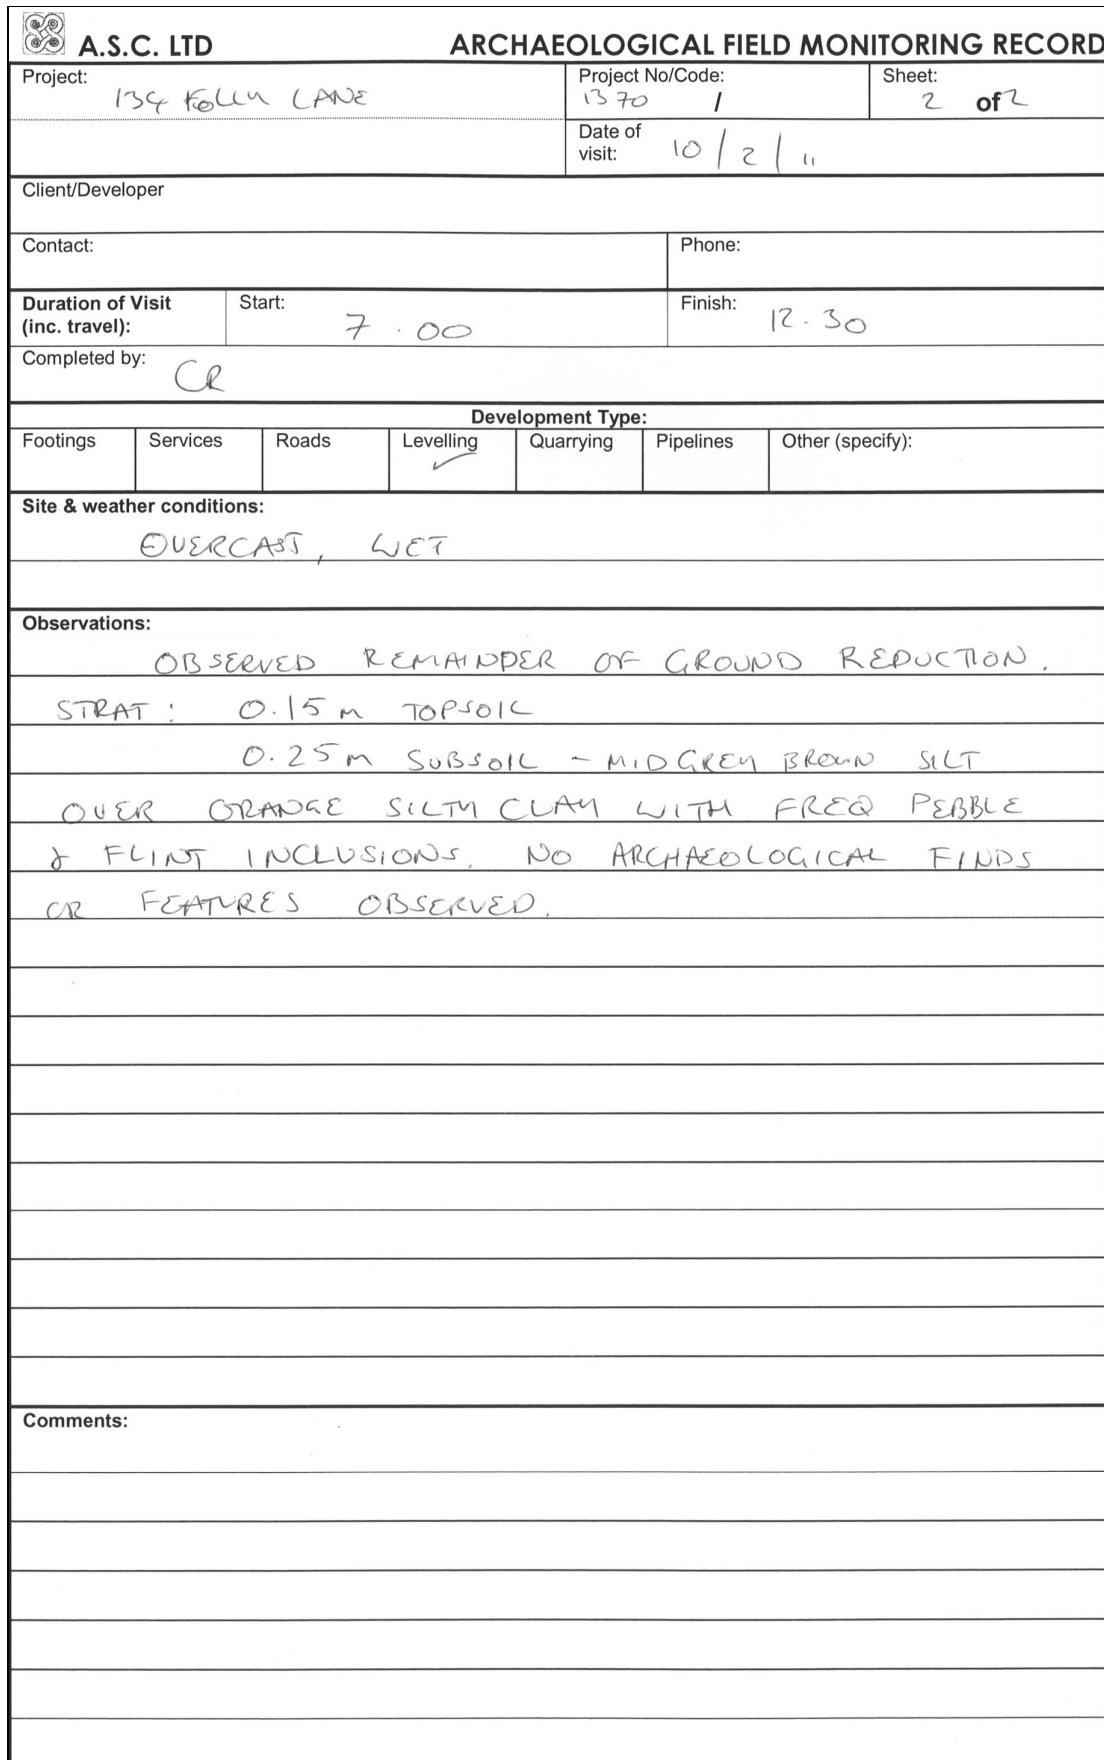 A.S.C. LTD ARCHAEOLOGICAL FIELD MONITORING RECORD
Project: Project No/Code: Sheet:
134 FOLLY LANE 1370 / 2 of 2
Date of
visit: 10/2/11
Client/Developer
Contact: Phone:
Duration of Visit Start: Finish:
(inc. travel): 7.00 12.30
Completed by: CR
Development Type:
Footings Services Roads Levelling Quarrying Pipelines Other (specify):
✓
Site & weather conditions:
OVERCAST, WET
Observations:
OBSERVED REMAINDER OF GROUND REDUCTION.
STRAT: 0.15m TOPSOIL
0.25m SUBSOIL - MID GREY BROWN SILT
OVER ORANGE SILTY CLAY WITH FREQ PEBBLE
& FLINT INCLUSIONS. NO ARCHAEOLOGICAL FINDS
OR FEATURES OBSERVED.
Comments: